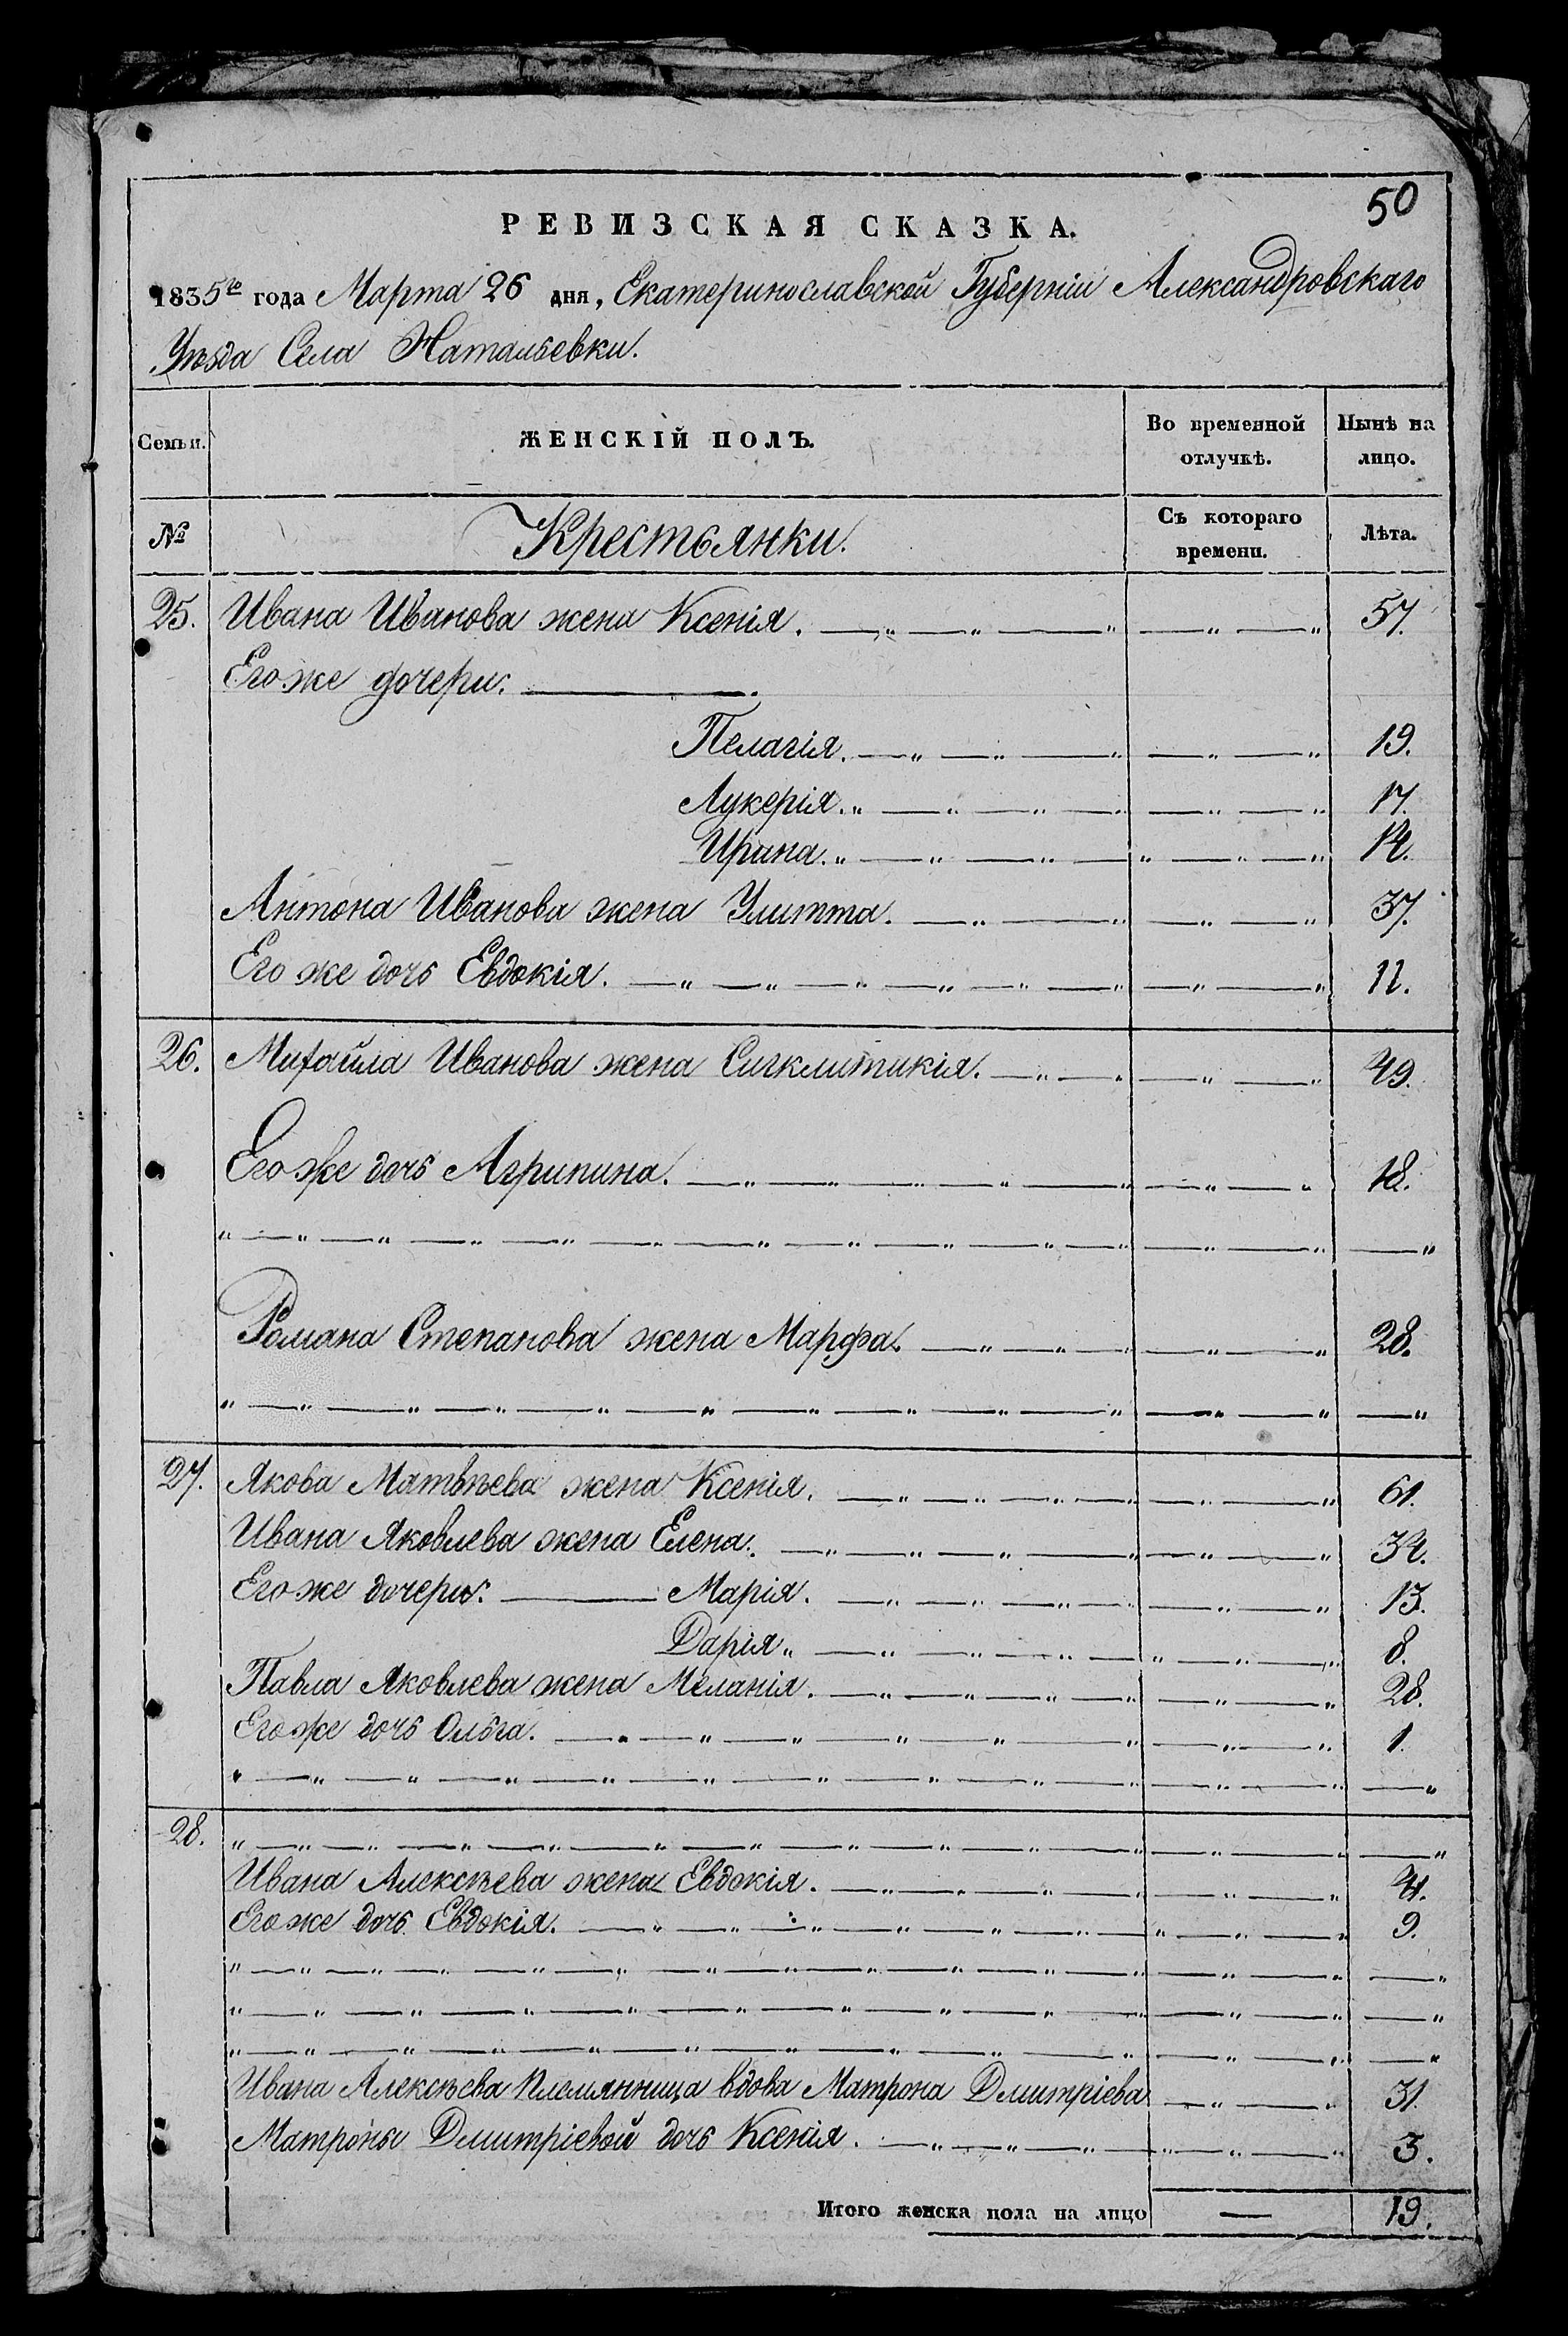 50
РЕВИЗСКАЯ СКАЗКА.
1835го года Марта 26 дня, Екатеринославской Губерніи Александровскаго
Уѣзда Села Натальевки.
Семьи. ЖЕНСКІЙ ПОЛЪ. Во временной отлучкѣ. Нынѣ на лицо.
№ Крестьянки. Съ котораго времени. Лѣта.
25. Ивана Иванова жена Ксенія. 57.
Его же дочери:
Пелагія. 19.
Лукерія. 17.
Ирина. 14.
Антона Иванова жена Улитта. 37.
Его же дочь Евдокія. 11.
26. Михайла Иванова жена Сигклитикія. 49.
Его же дочь Агрипина. 18.
Романа Степанова жена Марфа. 28.
27. Якова Матвѣева жена Ксенія. 61.
Ивана Яковлева жена Елена. 34.
Его же дочери: Марія. 13.
Дарія. 8.
Павла Яковлева жена Меланія. 28.
Его же дочь Ольга. 1.
28.
Ивана Алексѣева жена Евдокія. 41.
Его же дочь Евдокія. 9.
Ивана Алексѣева племянница вдова Матрона Дмитріева 31.
Матроны Дмитріевой дочь Ксенія. 3.
Итого женска пола на лицо — 19.